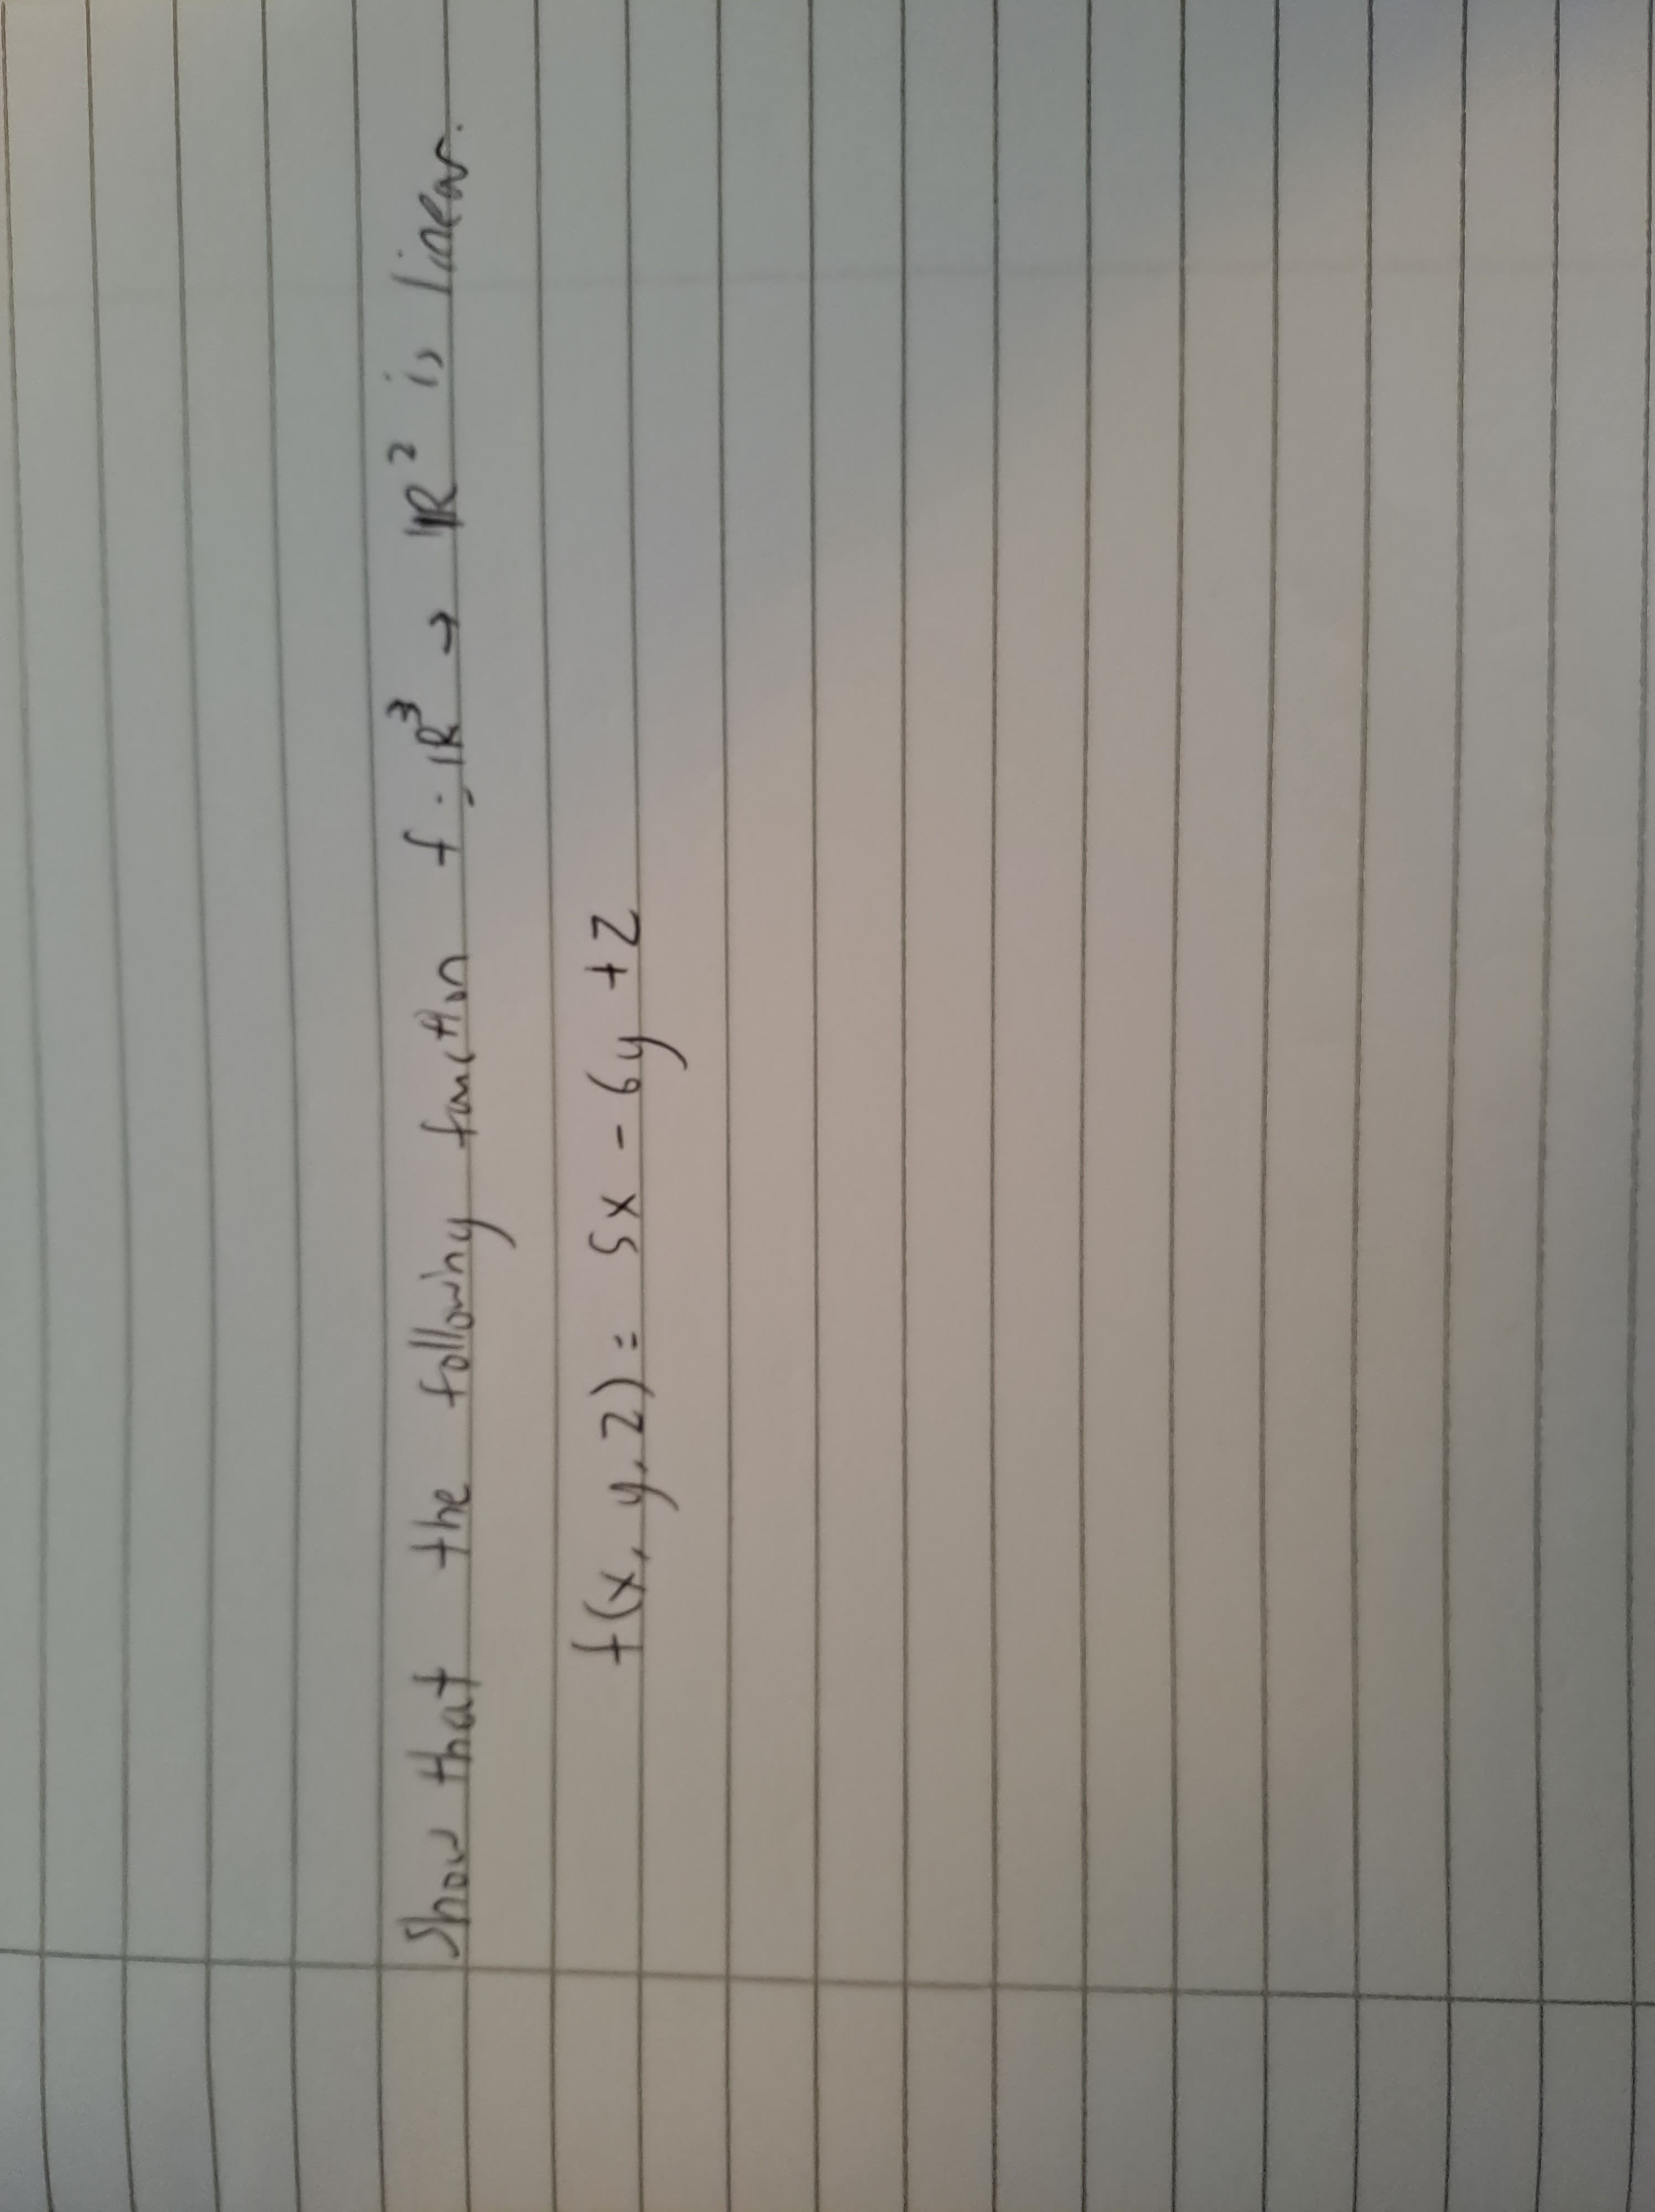 Show that the following function f: ℝ³ → ℝ² is linear.
f(x, y, z) = 5x - 6y + z